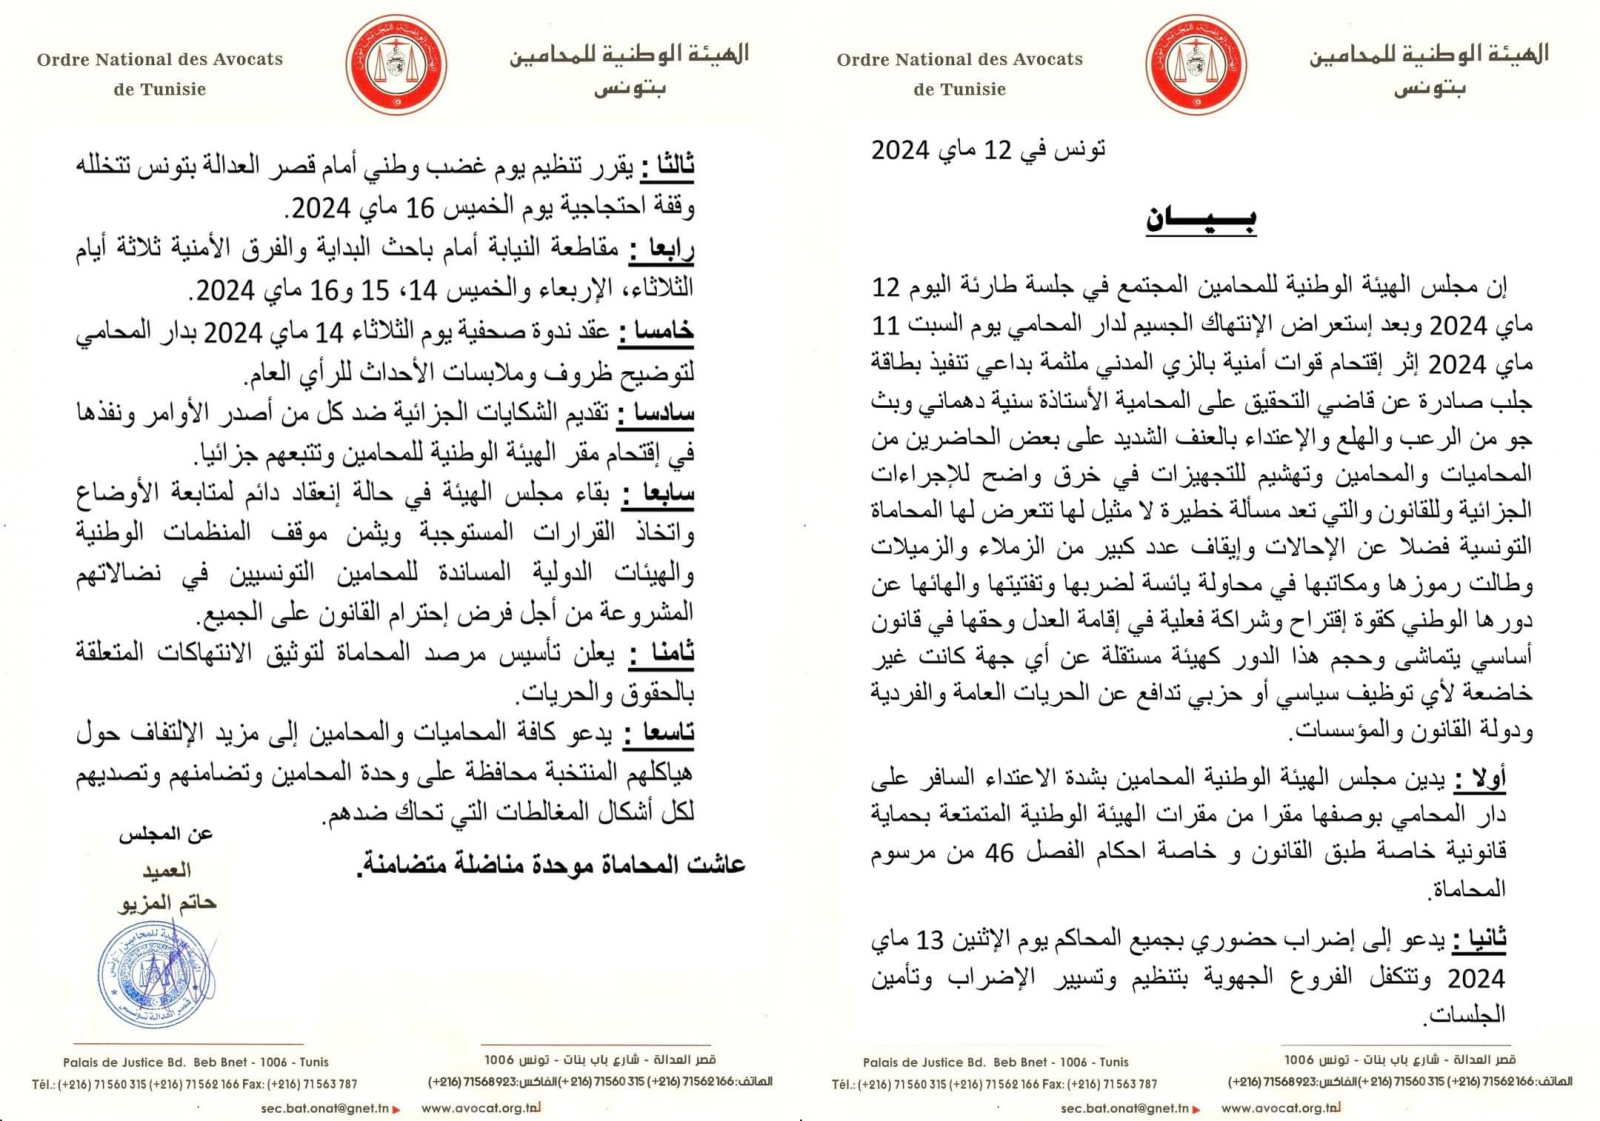 Ordre National des Avocats
de Tunisie
الهيئة الوطنية للمحامين
بتونس
تونس في 12 ماي 2024
بـيـــان
إن مجلس الهيئة الوطنية للمحامين المجتمع في جلسة طارئة اليوم 12
ماي 2024 وبعد إستعراض الإنتهاك الجسيم لدار المحامي يوم السبت 11
ماي 2024 إثر إقتحام قوات أمنية بالزي المدني ملثمة بداعي تنفيذ بطاقة
جلب صادرة عن قاضي التحقيق على المحامية الأستاذة سنية دهماني وبث
جو من الرعب والهلع والإعتداء بالعنف الشديد على بعض الحاضرين من
المحاميات والمحامين وتهشيم للتجهيزات في خرق واضح للإجراءات
الجزائية وللقانون والتي تعد مسألة خطيرة لا مثيل لها تتعرض لها المحاماة
التونسية فضلا عن الإحالات وإيقاف عدد كبير من الزملاء والزميلات
وطالت رموزها ومكاتبها في محاولة يائسة لضربها وتفتيتها والهائها عن
دورها الوطني كقوة إقتراح وشراكة فعلية في إقامة العدل وحقها في قانون
أساسي يتماشى وحجم هذا الدور كهيئة مستقلة عن أي جهة كانت غير
خاضعة لأي توظيف سياسي أو حزبي تدافع عن الحريات العامة والفردية
ودولة القانون والمؤسسات.
أولا : يدين مجلس الهيئة الوطنية المحامين بشدة الاعتداء السافر على
دار المحامي بوصفها مقرا من مقرات الهيئة الوطنية المتمتعة بحماية
قانونية خاصة طبق القانون و خاصة احكام الفصل 46 من مرسوم
المحاماة.
ثانيا : يدعو إلى إضراب حضوري بجميع المحاكم يوم الإثنين 13 ماي
2024 وتتكفل الفروع الجهوية بتنظيم وتسيير الإضراب وتأمين
الجلسات.
Palais de Justice Bd. Beb Bnet - 1006 - Tunis
قصر العدالة - شارع باب بنات - تونس 1006
Tél.: (+216) 71 560 315 (+216) 71 562 166 Fax: (+216) 71 563 787
الهاتف:71562166 (216+) 71560 315 (216+)الفاكس:71568923(216+)
sec.bat.onat@gnet.tn
www.avocat.org.tn
Ordre National des Avocats
de Tunisie
الهيئة الوطنية للمحامين
بتونس
ثالثا : يقرر تنظيم يوم غضب وطني أمام قصر العدالة بتونس تتخلله
وقفة احتجاجية يوم الخميس 16 ماي 2024.
رابعا : مقاطعة النيابة أمام باحث البداية والفرق الأمنية ثلاثة أيام
الثلاثاء، الإربعاء والخميس 14، 15 و16 ماي 2024.
خامسا : عقد ندوة صحفية يوم الثلاثاء 14 ماي 2024 بدار المحامي
لتوضيح ظروف وملابسات الأحداث للرأي العام.
سادسا : تقديم الشكايات الجزائية ضد كل من أصدر الأوامر ونفذها
في إقتحام مقر الهيئة الوطنية للمحامين وتتبعهم جزائيا.
سابعا : بقاء مجلس الهيئة في حالة إنعقاد دائم لمتابعة الأوضاع
واتخاذ القرارات المستوجبة ويثمن موقف المنظمات الوطنية
والهيئات الدولية المساندة للمحامين التونسيين في نضالاتهم
المشروعة من أجل فرض إحترام القانون على الجميع.
ثامنا : يعلن تأسيس مرصد المحاماة لتوثيق الانتهاكات المتعلقة
بالحقوق والحريات.
تاسعا : يدعو كافة المحاميات والمحامين إلى مزيد الإلتفاف حول
هياكلهم المنتخبة محافظة على وحدة المحامين وتضامنهم وتصديهم
لكل أشكال المغالطات التي تحاك ضدهم.
عاشت المحاماة موحدة مناضلة متضامنة.
عن المجلس
العميد
حاتم المزيو
Palais de Justice Bd. Beb Bnet - 1006 - Tunis
قصر العدالة - شارع باب بنات - تونس 1006
Tél.: (+216) 71 560 315 (+216) 71 562 166 Fax: (+216) 71 563 787
الهاتف:71562166 (216+) 71560 315 (216+)الفاكس:71568923(216+)
sec.bat.onat@gnet.tn
www.avocat.org.tn